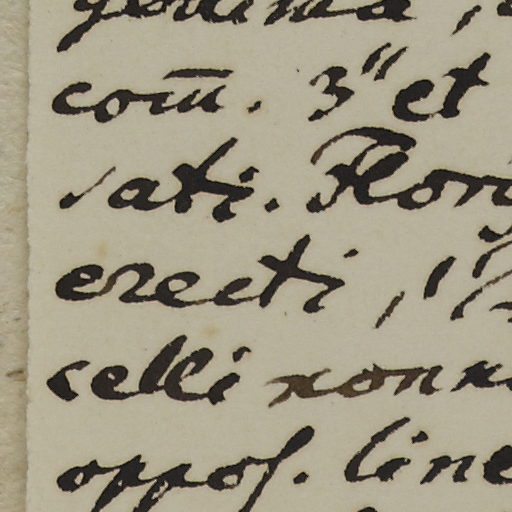 com̅. 3" et
sati. Flor
erecti, 1"
celli non
oppos. line